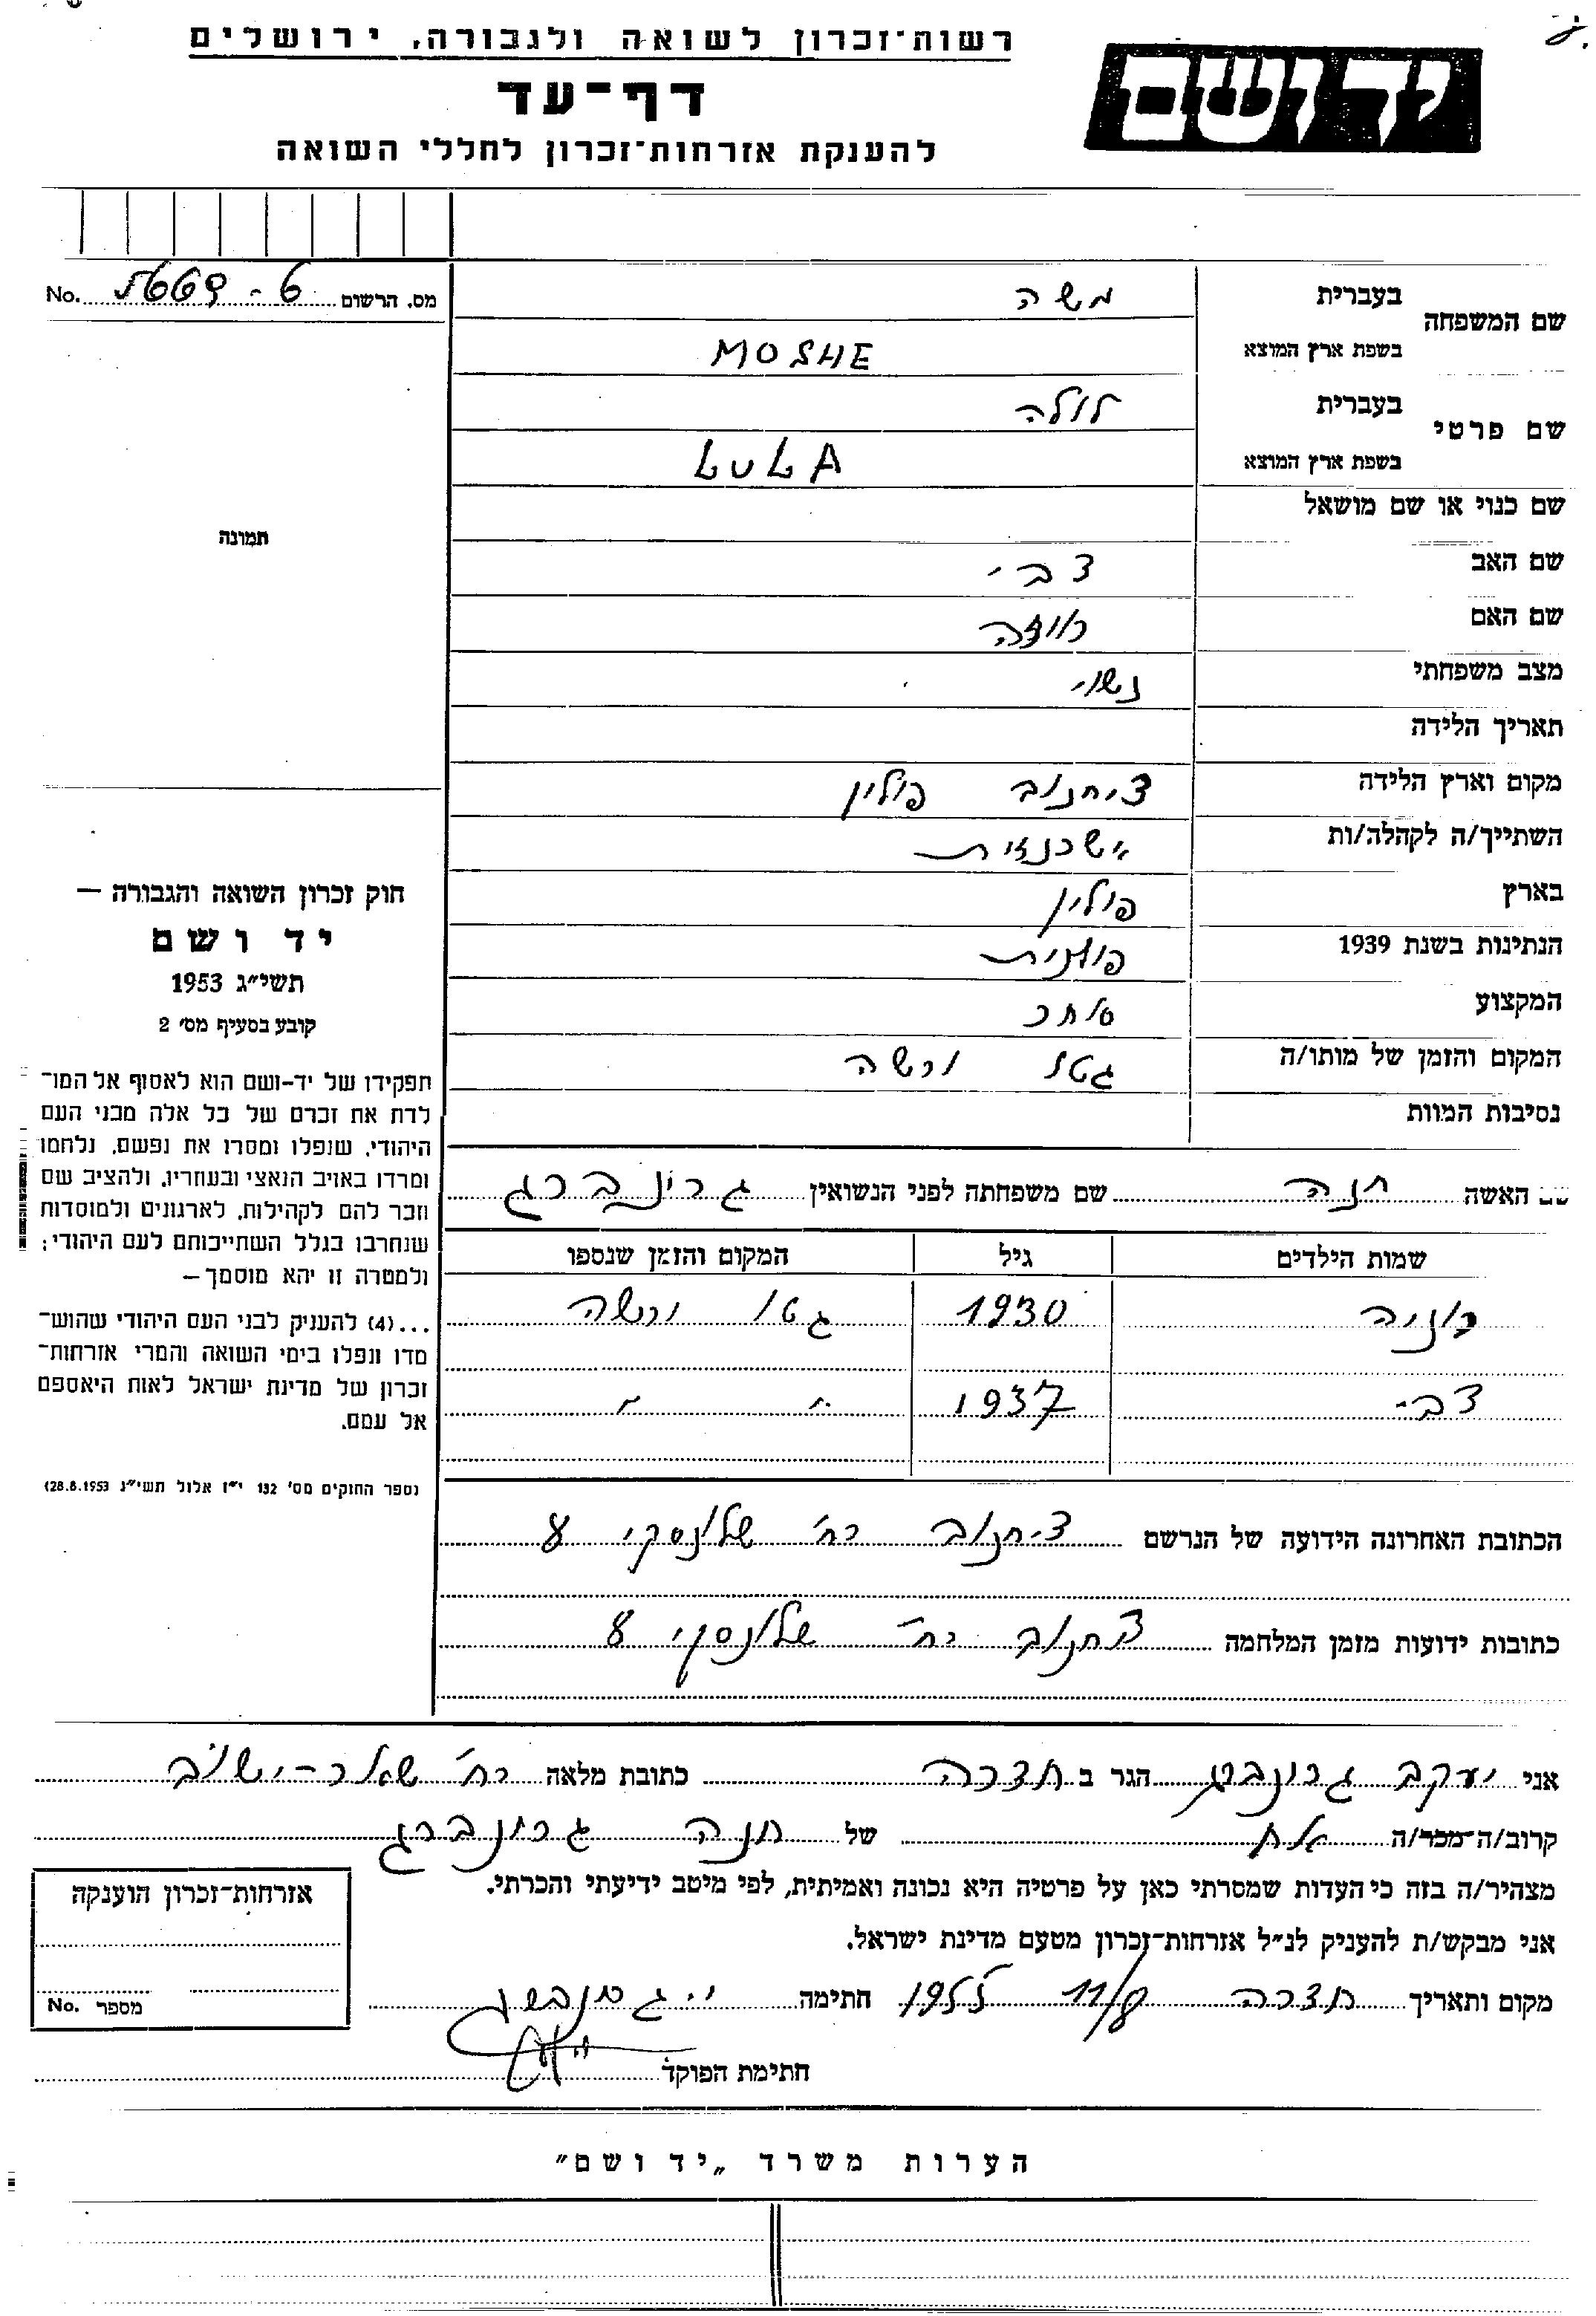 רשות־זכרון לשואה ולגבורה, ירושלים
ידושם
דף־עד
להענקת אזרחות־זכרון לחללי השואה
מס. הרשום 5669 - 6 No.
שם המשפחה
בעברית משה
בשפת ארץ המוצא MOSHE
שם פרטי
בעברית לולה
בשפת ארץ המוצא LULA
שם כנוי או שם מושאל
תמונה
שם האב צבי
שם האם רוזה
מצב משפחתי נשוי
תאריך הלידה
מקום וארץ הלידה ציחנוב פולין
השתייך/ה לקהלה/ות אשכנזית
בארץ פולין
הנתינות בשנת 1939 פולנית
המקצוע סוחר
המקום והזמן של מותו/ה גטו ורשה
נסיבות המוות
חוק זכרון השואה והגבורה —
יד ושם
תשי״ג 1953
קובע בסעיף מס׳ 2
תפקידן של יד-ושם הוא לאסוף אל המו־
לדת את זכרם של כל אלה מבני העם
היהודי, שנפלו ומסרו את נפשם, נלחמו
ומרדו באויב הנאצי ובעוזריו, ולהציב שם
וזכר להם לקהילות, לארגונים ולמוסדות
שנחרבו בגלל השתייכותם לעם היהודי;
ולמטרה זו יהא מוסמך —
...(4) להעניק לבני העם היהודי שהוש־
מדו ונפלו בימי השואה והמרי אזרחות־
זכרון של מדינת ישראל לאות היאספם
אל עמם.
(ספר החוקים מס׳ 132 י״ז אלול תשי״ג 28.8.1953)
שם האשה חנה שם משפחתה לפני הנשואין גרינברג
שמות הילדים גיל המקום והזמן שנספו
1930 גטו ורשה
צבי 1937 " "
הכתובת האחרונה הידועה של הנרשם ציחנוב רח׳ שלונסקי 8
כתובות ידועות מזמן המלחמה צחנוב רח׳ שלונסקי 8
אני יעקב גרונברג הגר ב חדרה כתובת מלאה רח׳ שאר-ישוב
קרוב/ה־מכר/ה אח של חנה גרונברג
מצהיר/ה בזה כי העדות שמסרתי כאן על פרטיה היא נכונה ואמיתית, לפי מיטב ידיעתי והכרתי.
אני מבקש/ת להעניק לנ״ל אזרחות־זכרון מטעם מדינת ישראל.
מקום ותאריך חדרה 11/8 1955 חתימה
חתימת הפוקד
אזרחות־זכרון הוענקה
מספר No.
הערות משרד „יד ושם״